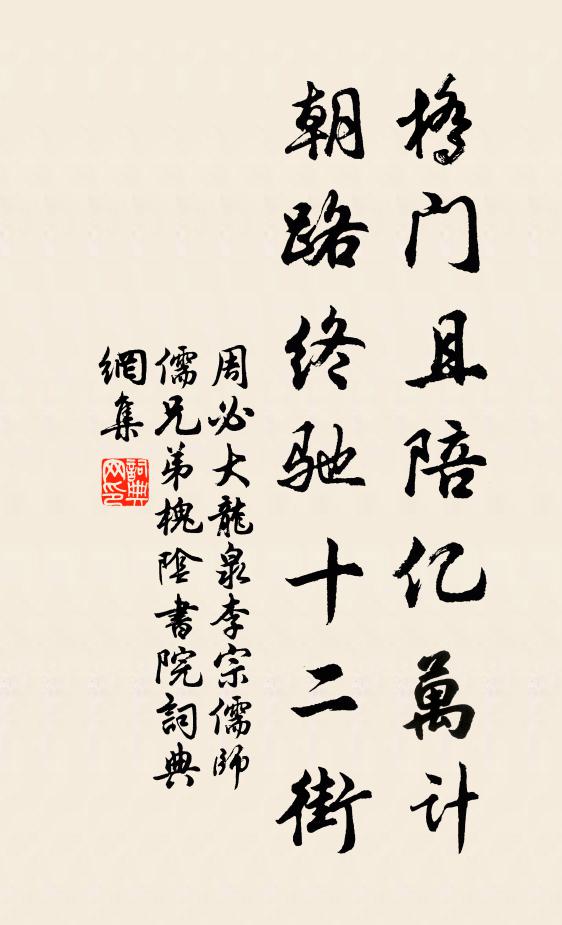 橋门且陪亿萬计
朝路终驰十二街
周必大龍泉李宗儒師
儒兄弟槐陰書院詞典
網集
詞典網印